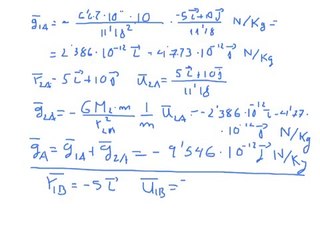 g⃗1A = - 6'67·10^-11 · 10 / 11'18² · -5i⃗+10j⃗ / 11'18 N/Kg =
= 2'386·10^-12 i⃗ - 4'773·10^-12 j⃗ N/Kg
r⃗2A = 5i⃗ + 10j⃗ U⃗2A = 5i⃗+10j⃗ / 11'18
g⃗2A = - G M2·m / r²2A · 1/m U⃗2A = -2'386·10^-12 i⃗ - 4'77·
·10^-12 j⃗ N/Kg
g⃗A = g⃗1A + g⃗2A = - 9'546·10^-12 j⃗ N/Kg
r⃗1B = -5i⃗ U⃗1B = -